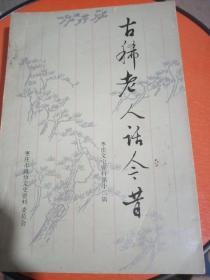 古稀老人话今昔
枣庄文史资料第十二辑
枣庄市政协文史资料委员会